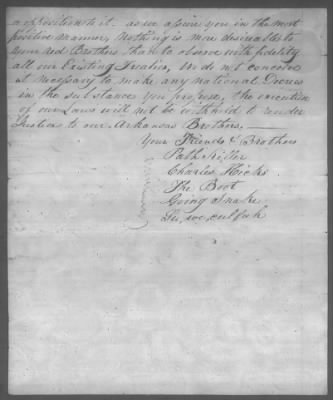 opposition to it. as we assure you in the most
positive manner, Nothing is more desireable to
your red Brothers, than to observe with fidelity
all our Existing Treaties, We do not conceive
it necessary to make any National Decree
in the substance you propose, the execution
of our Laws will not be withheld to render
Justice to our Arkansas Brothers.
Your Friends & Brothers
Path Killer
Charles Hicks
The Boot
Going Snake